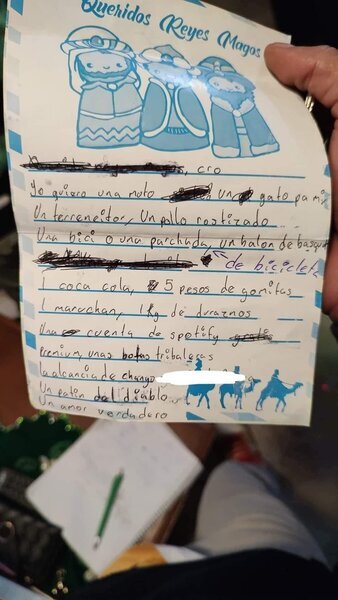 Queridos Reyes Magos
, cro
Yo quiero una moto un gato pa mi
Un terreneitor, Un pollo rostizado
Una bici o una parchada, un balon de basqu
de biciclet
1 coca cola, 5 pesos de gomitas
1 maruchan, 1 kg de duraznos
Una cuenta de spotify
premium, unas botas tribaleras
la alcancia de chango
Un patin del diablo
Un amor verdadero